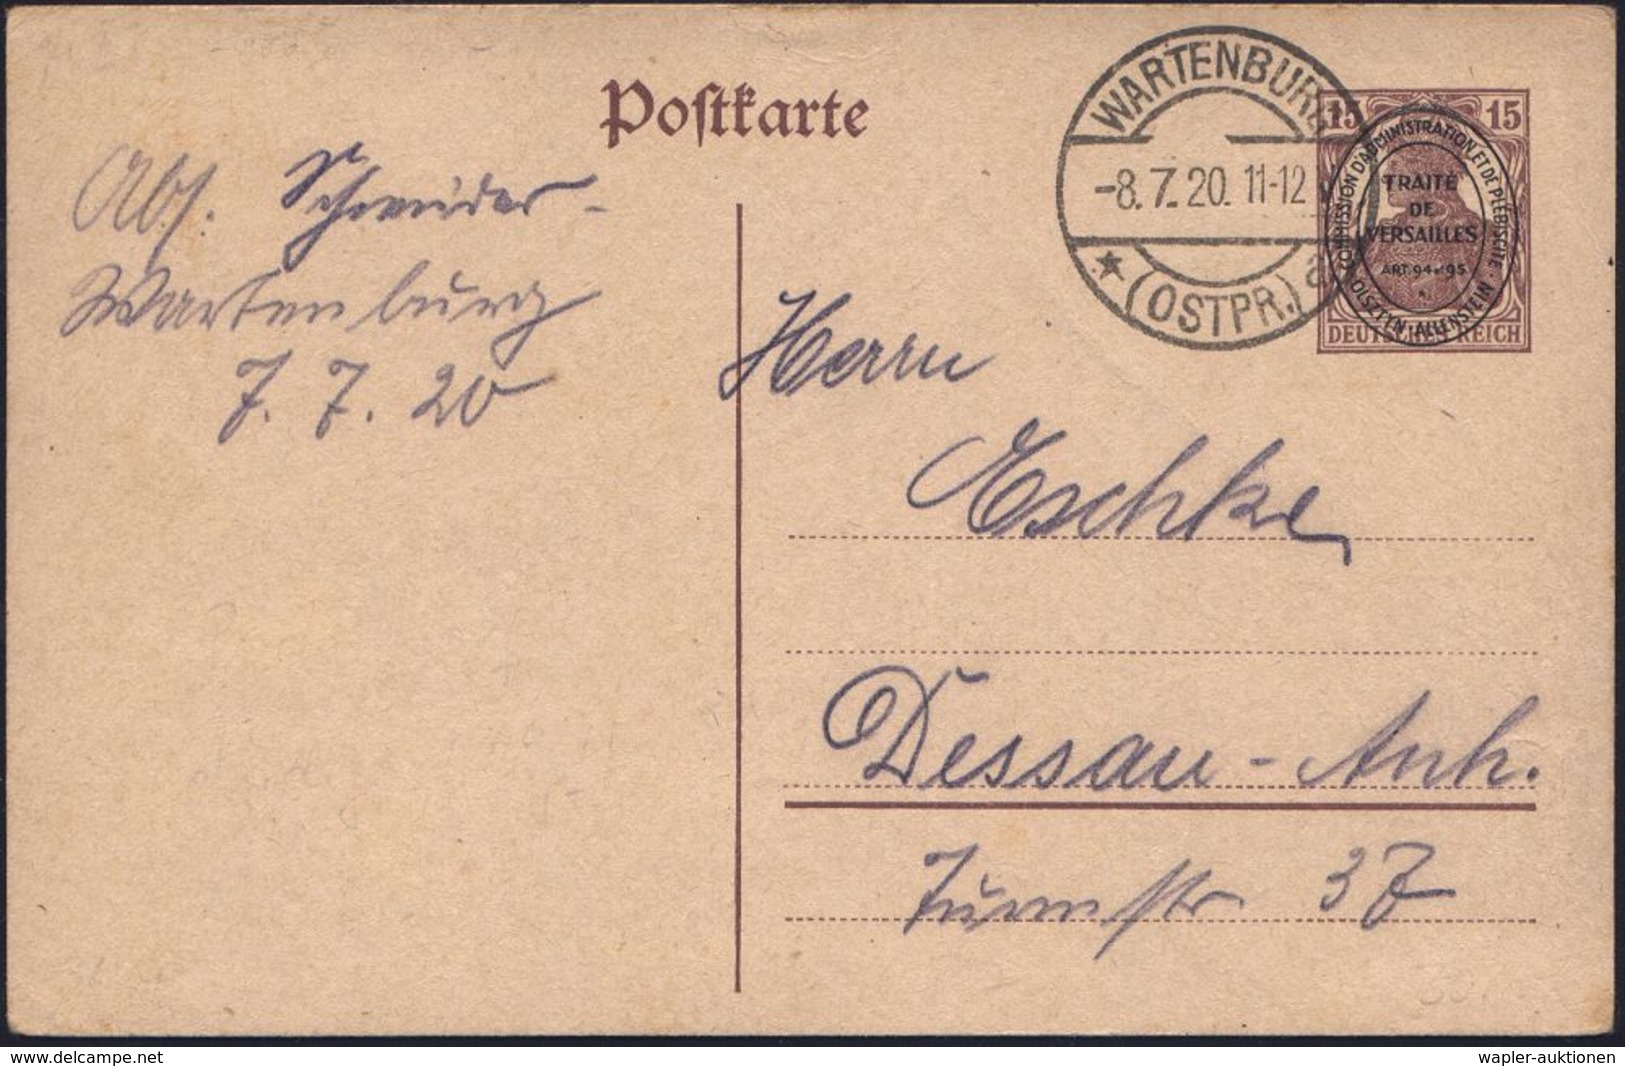 Postkarte
WARTENBURG
-8.7.20. 11-12 V
* (OSTPR.) a
15 15
COMMISSION D'ADMINISTRATION ET DE PLÉBISCITE · OLSZTYN · ALLENSTEIN
TRAITÉ
DE
VERSAILLES
ART. 94 et 95
DEUTSCHES REICH
Abs. Schneider -
Wartenburg
7. 7. 20
Herrn
Eschke
Dessau - Anh.
Turmstr 37
www.delcampe.net
wapler-auktionen